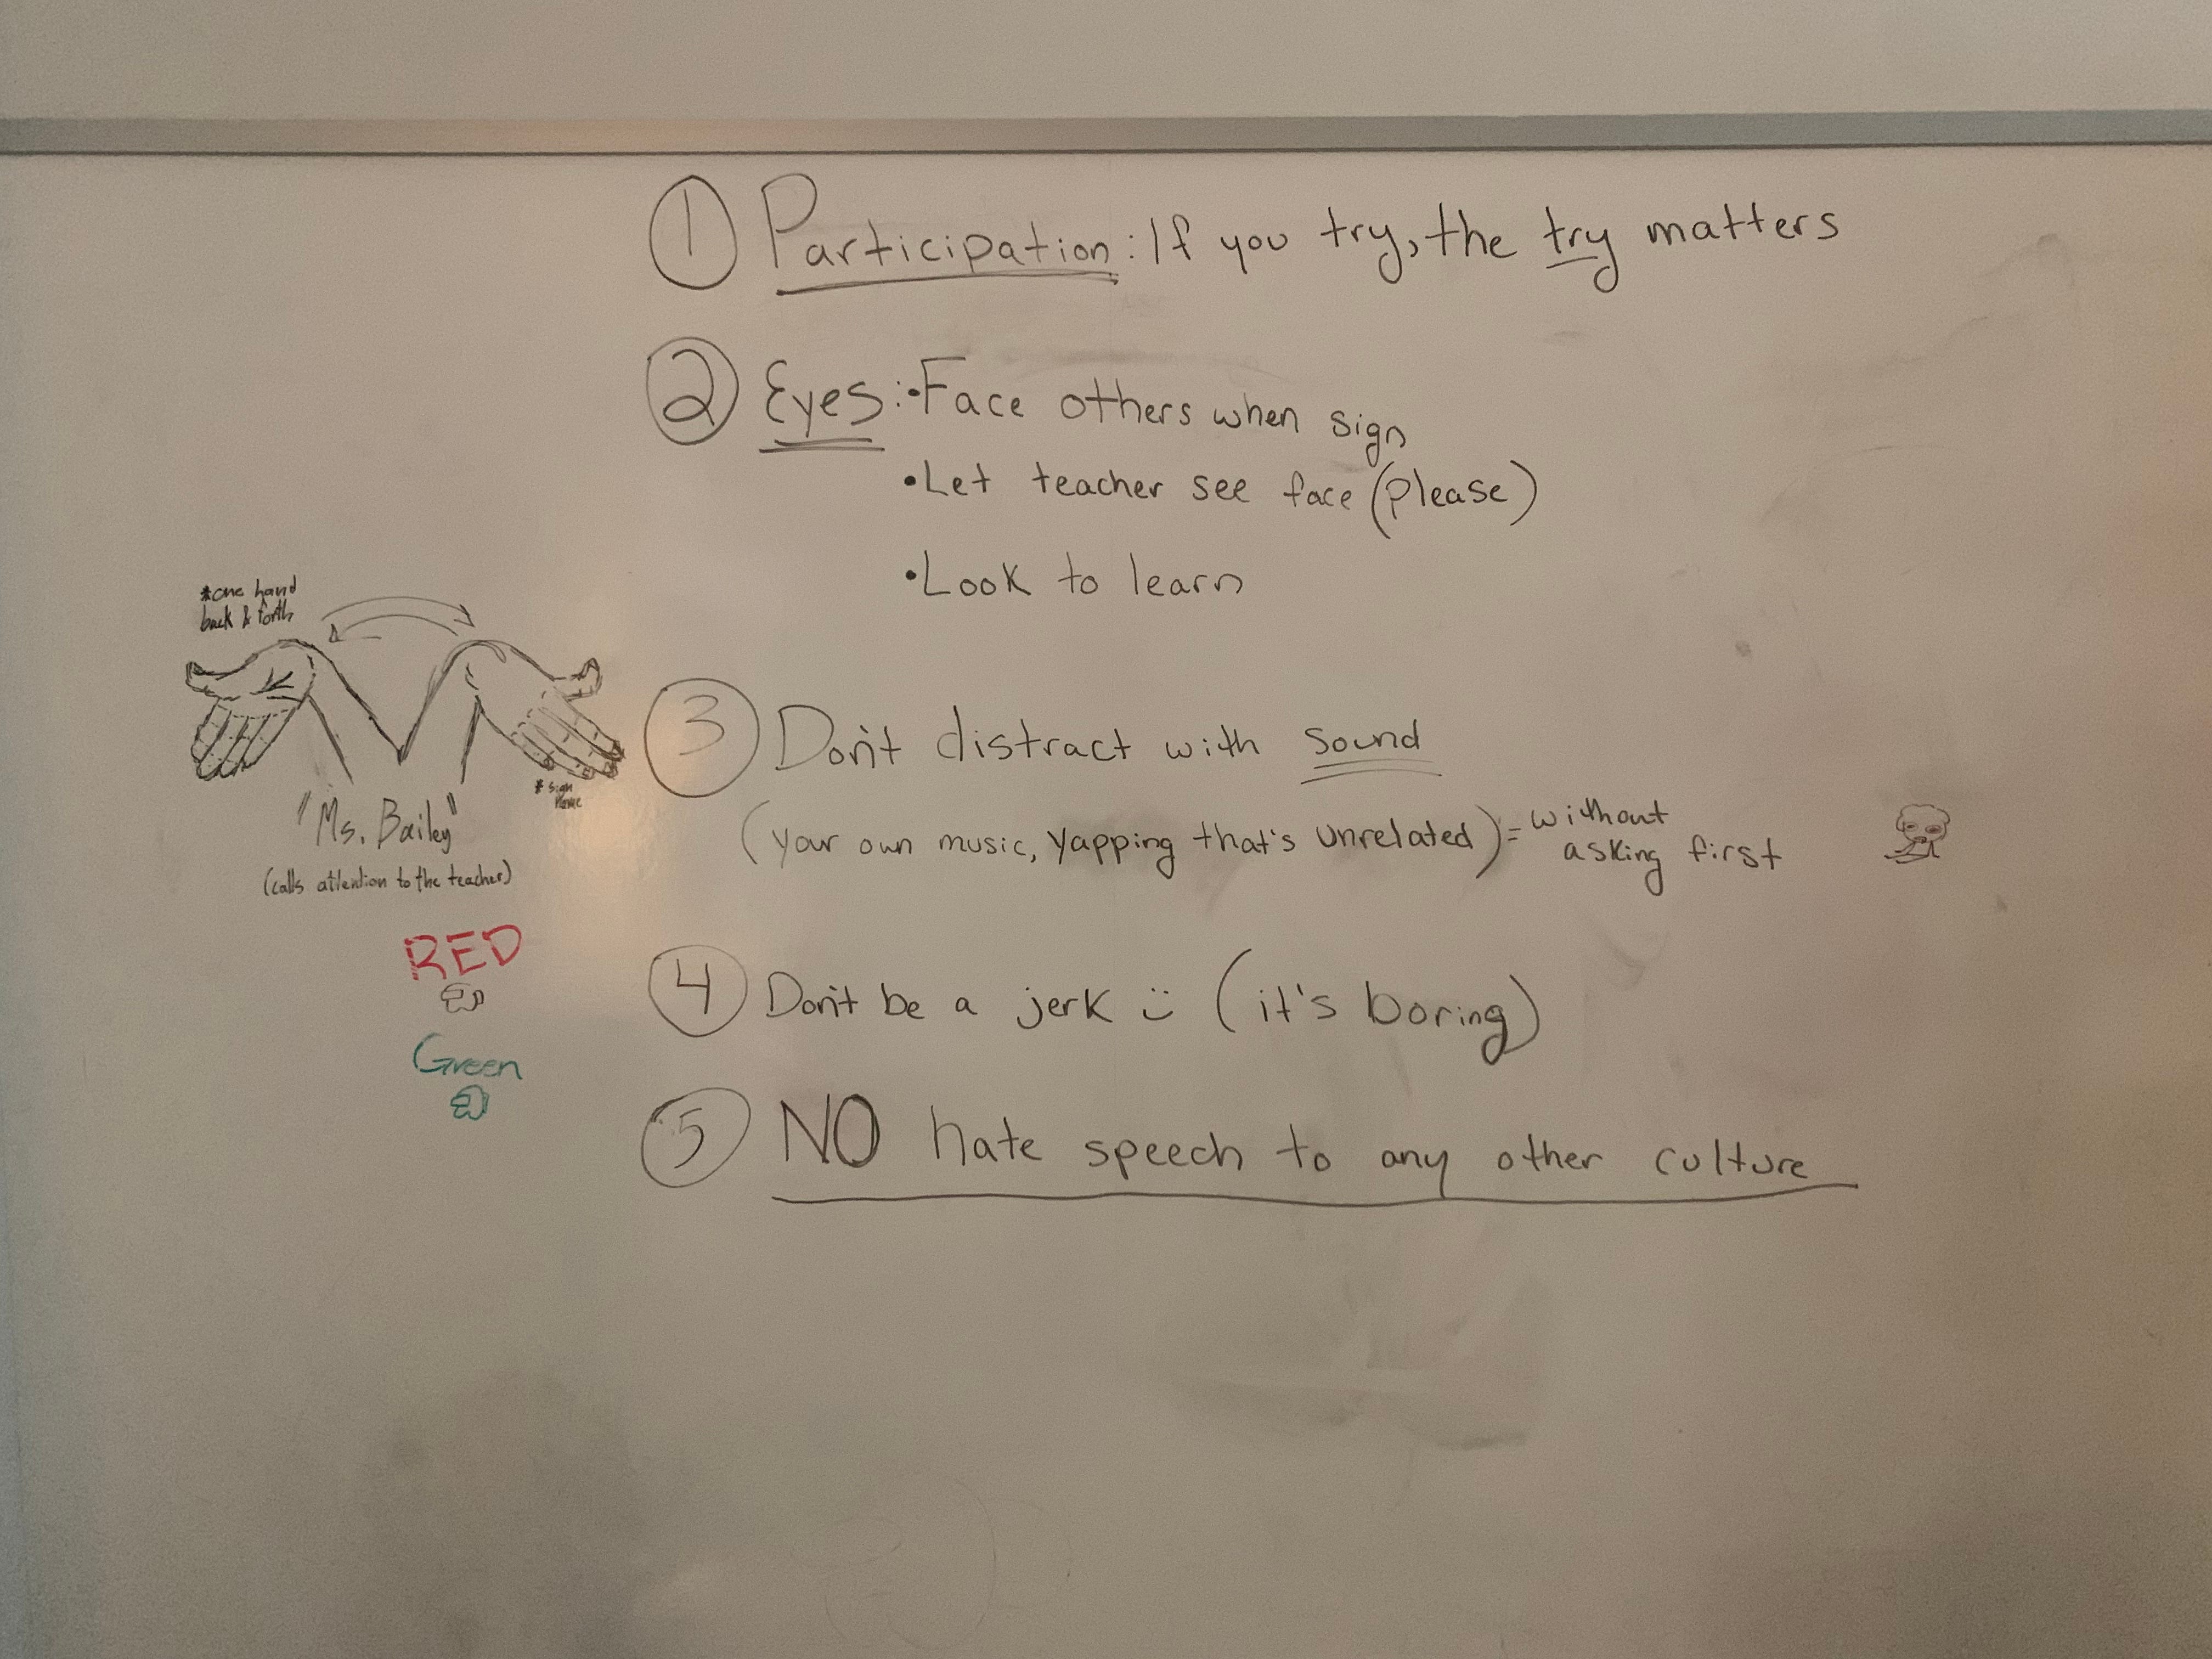 ① Participation: If you try, the try matters
② Eyes: • Face others when sign
• Let teacher see face (please)
• Look to learn
*one hand
back & forth
* sign
name
"Ms. Bailey"
(calls attention to the teacher)
RED
Green
③ Don't distract with sound
(your own music, yapping that's unrelated) = without
asking first
④ Don't be a jerk :) (it's boring)
⑤ NO hate speech to any other culture